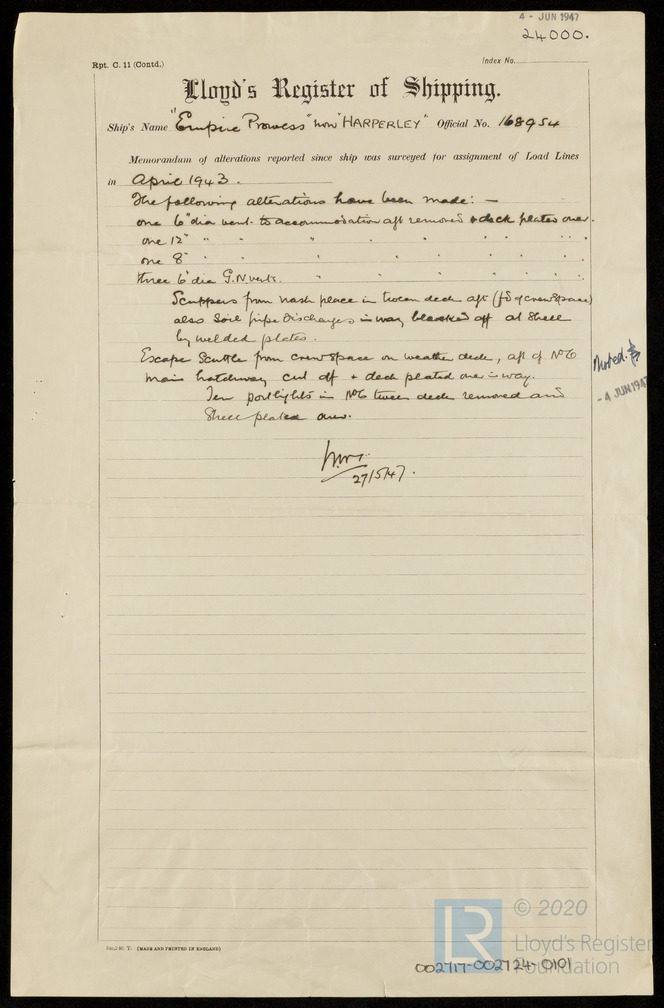 4 - JUN 1947
24000.
Rpt. C. 11 (Contd.)
Index No.
Lloyd's Register of Shipping.
Ship's Name "Empire Prowess" now "HARPERLEY" Official No. 168954
Memorandum of alterations reported since ship was surveyed for assignment of Load Lines
in April 1943.
The following alterations have been made: —
one 6" dia vent. to accommodation aft removed & deck plated over.
one 12" " " " " " " " "
one 8" " " " " " " " "
three 6" dia G.N vents. " " " " " "
Scuppers from wash place in tween deck aft (fd of crew space)
also Soil pipe discharges in way blanked off at Shell
by welded plates.
Escape Scuttle from crew space on weather deck, aft of No 6
main hatchway cut off & deck plated over in way.
Ten portlights in No 6 tween deck removed and
Shell plated over.
27/5/47.
Noted.
- 4 JUN 1947
(MADE AND PRINTED IN ENGLAND)
© 2020
Lloyd's Register
Foundation
002717-002724-0101